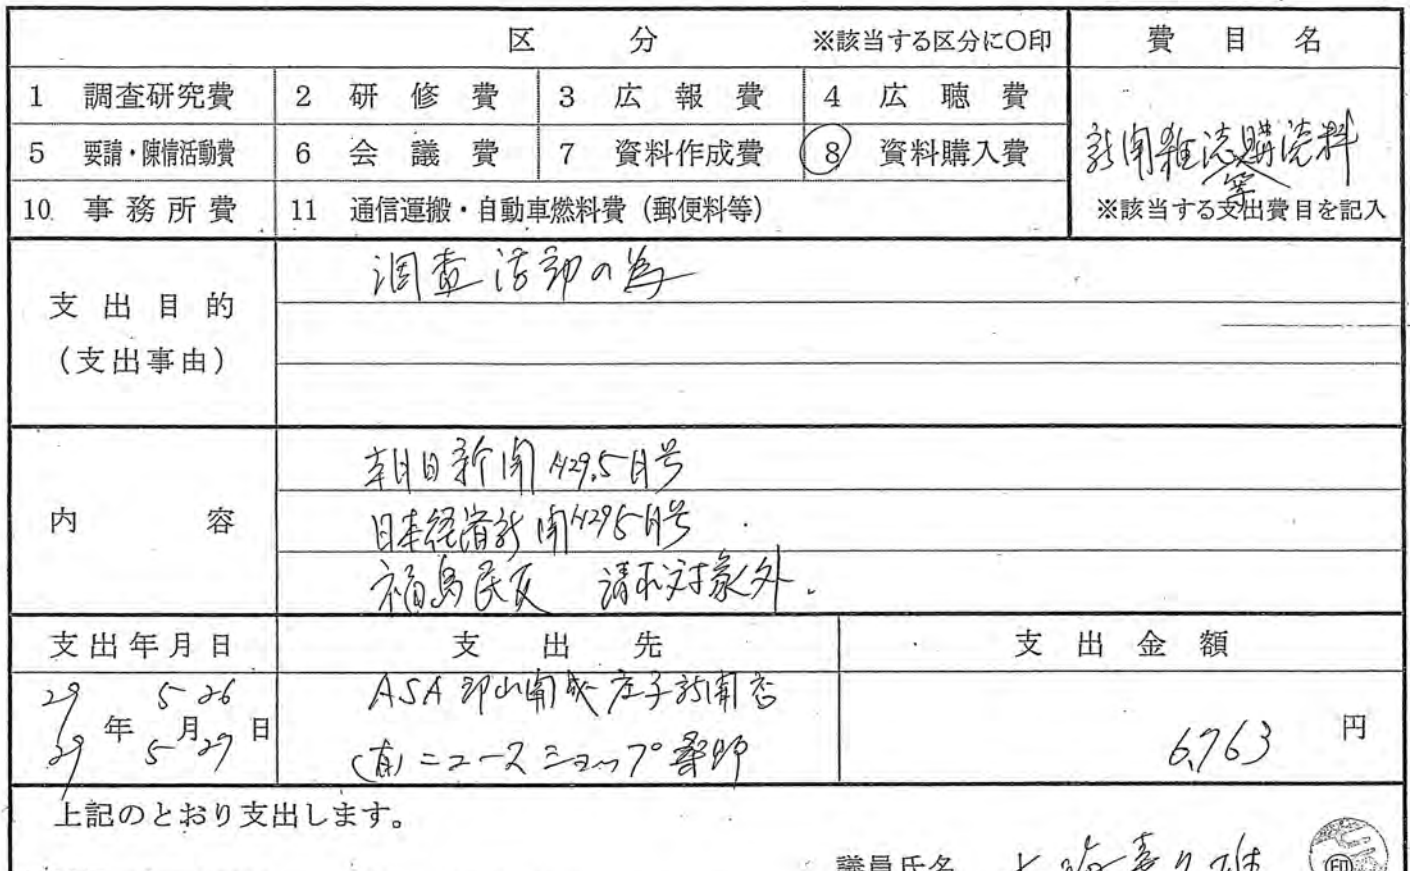 区 分 ※該当する区分に○印 費 目 名
1 調査研究費 2 研 修 費 3 広 報 費 4 広 聴 費
5 要請・陳情活動費 6 会 議 費 7 資料作成費 8 資料購入費
新聞雑誌購読料
等
10 事務所費 11 通信運搬・自動車燃料費(郵便料等) ※該当する支出費目を記入
支出目的
(支出事由)
調査活動の為
内 容
朝日新聞 H29.5月号
日本経済新聞 H29 5月号
福島民友 請求対象外.
支出年月日 支 出 先 支 出 金 額
29年 5月 26日 ASA郡山南 庄子新聞店
29 5 27 (有)ニュースショップ桑野
6,763 円
上記のとおり支出します。
議員氏名
印